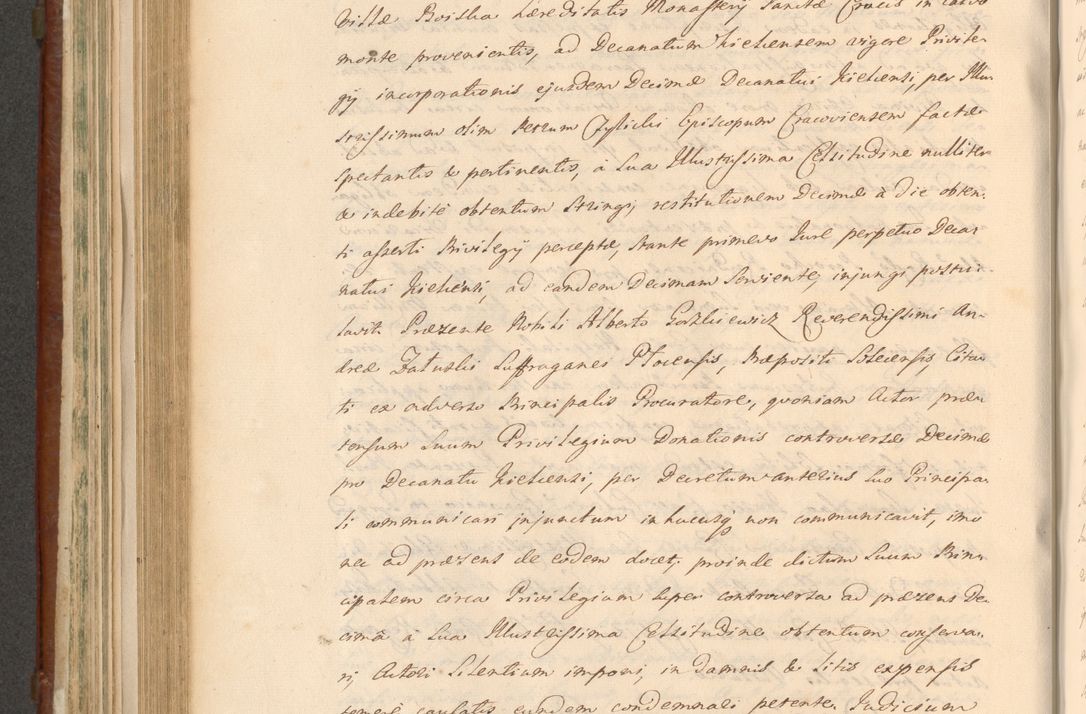 villæ Boiska hæreditatis Monastery Sanctæ Crucis in calvo
monte provenientis, ad Decanatum Kielcensem vigore Privile-
gij incorporationis ejusdem Decimæ Decanatui Kielcensi, per Illu-
strissimum olim Petrum Tylicki Episcopum Cracoviensem factæ
spectantis & pertinentis, â Sua Illustrissima Celsitudine nulliter
& indebitè obtentum Stringi, restitutionem Decimæ à die obten-
ti asserti Privilegij perceptæ, stante primævo Jure perpetuo Deca-
natui Kielcensi, ad eandem Decimam Serviente, injungi postu-
lavit. Præsente Nobili Alberto Goszkiewicz Reverendissimi An-
dreæ Zaluski Suffraganei Plocensis, Præpositi Soleciensis, Cita-
ti ex adverso Principalis Procuratore, quoniam Actor præ-
tensum Suum Privilegium Donationis controversæ Decimæ
pro Decanatu Kielcensi, per Decretum anterius Suo Principa-
li communicari injunctum in hucusq; non communicavit, imo
nec ad præsens de eodem docet, proinde dictum Suum Prin-
cipalem circa Privilegium super controversa ad præsens De-
cima â Sua Illustrissima Celsitudine obtentum conserva-
ri, Actori Silentium imponi, in damnis & litis expensis
temerè causatis eundem condemnari petente. Judicium